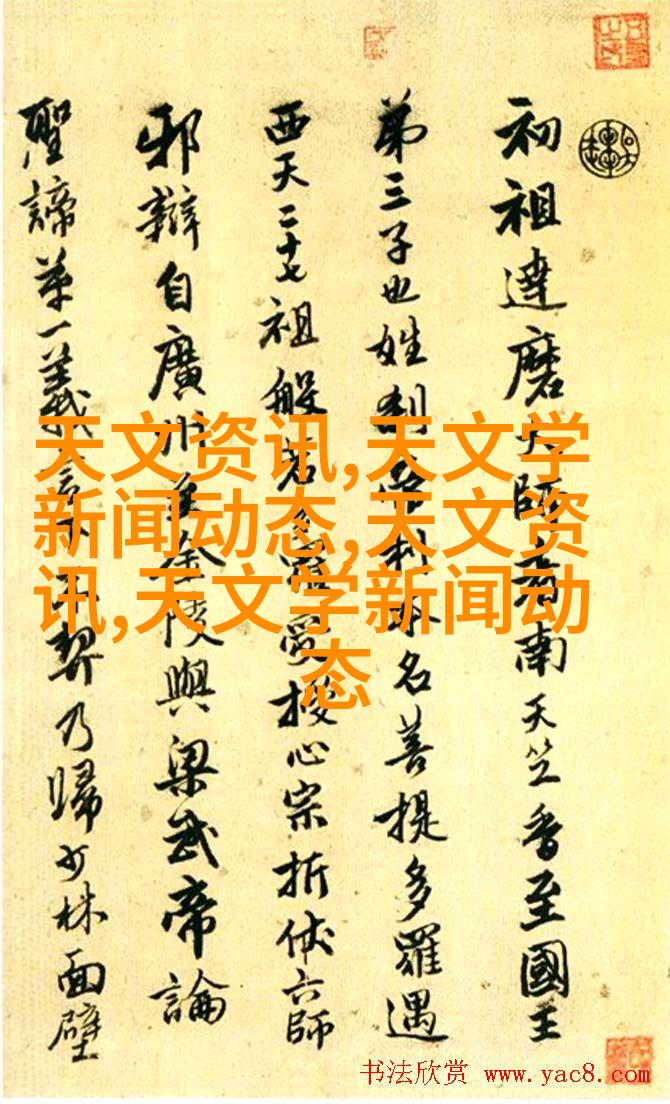 初祖達磨大師者南天竺香至國王
第三子也姓刹帝利本名菩提多羅遇
西天二十七祖般若多羅受授心宗折伏六師
邪辯自廣州至金陵與梁武帝論
聖諦第一義言下不契乃歸少林面壁
天文资讯,天文学
新闻动态,天文资
讯,天文学新闻动
态
书法欣赏 www.yac8.com